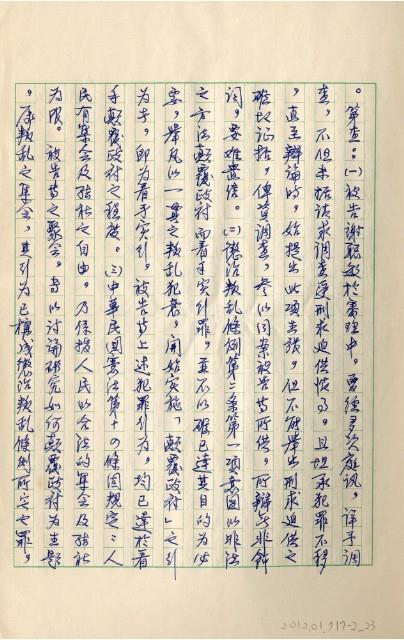 。第查：(一)被告謝聰敏於審理中，曾經多次庭訊，詳予調
查，不但未據請求調查受刑求逼供情事，且坦承犯罪不移
，直至辯論時，始提出此項主張，但不能舉出刑求逼供之
確切證據，俾資調查，參以同案被告等所供，所辯無非飾
詞，要難置信。(二)懲治叛亂條例第二條第一項意圖以非法
之方法顛覆政府而着手實行罪，並不以確已達其目的為必
要，舉凡以一貫之叛亂犯意，開始實施「顛覆政府」之行
為時，即為着手實行，被告等上述犯罪行為，均已達於着
手顛覆政府之程度。(三)中華民國憲法第十四條固規定：人
民有集會及結社之自由。乃係指人民以合法的集會及結社
為限。被告等之聚會，旨以討論研究如何顛覆政府為主題
，屬叛亂之集會，其行為已構成懲治叛亂條例所定之罪，
2012.01.717-J_23